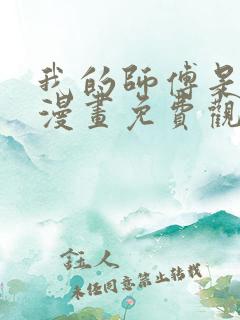 我的師傅是
漫畫免費觀
鈺人
未任同意禁止轉載